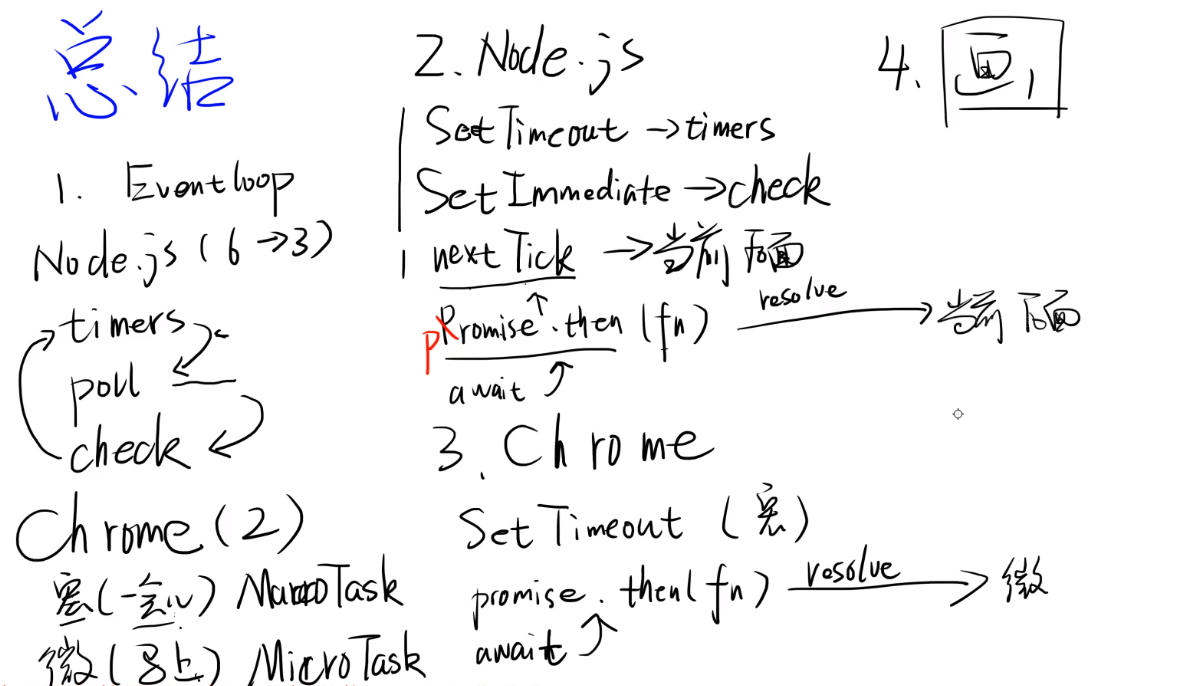 总结
1. Eventloop
Node.js (6→3)
timers
poll
check
Chrome(2)
宏(一会儿) MacroTask
微(马上) MicroTask
2. Node.js
SetTimeout →timers
SetImmediate →check
nextTick →当前 后面
Promise.then (fn) resolve → 当前 后面
p
await
3. Chrome
SetTimeout (宏)
promise.then(fn) resolve → 微
await
4. 画